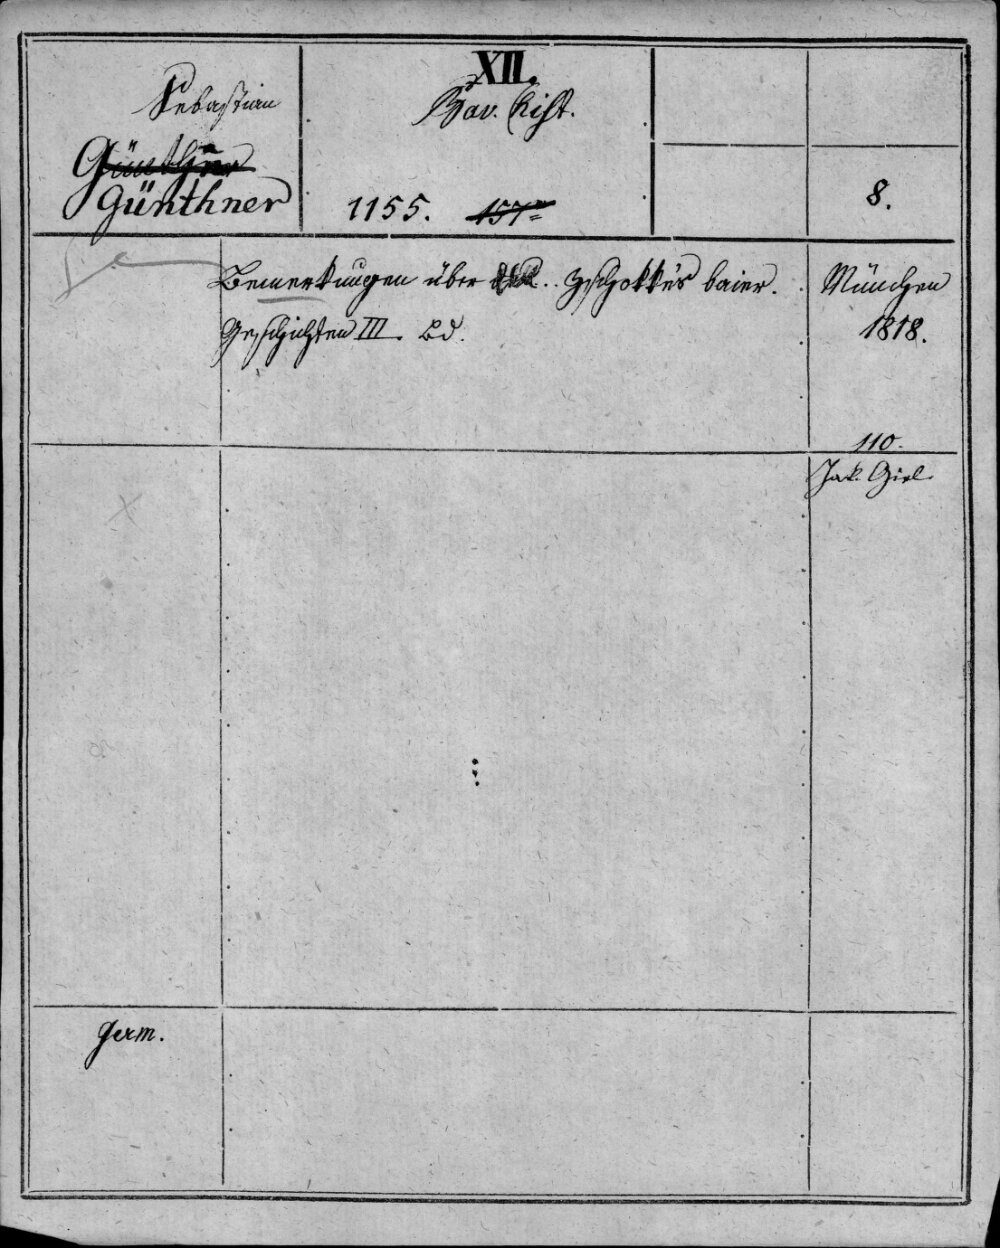 XII.
Sebastian
Bav. hist.
Günthner
Günthner
1155. 157
8.
Bemerkungen über Zschokke's baier.
Geschichten III. Bd.
München
1818.
110.
Jak. Giel
germ.